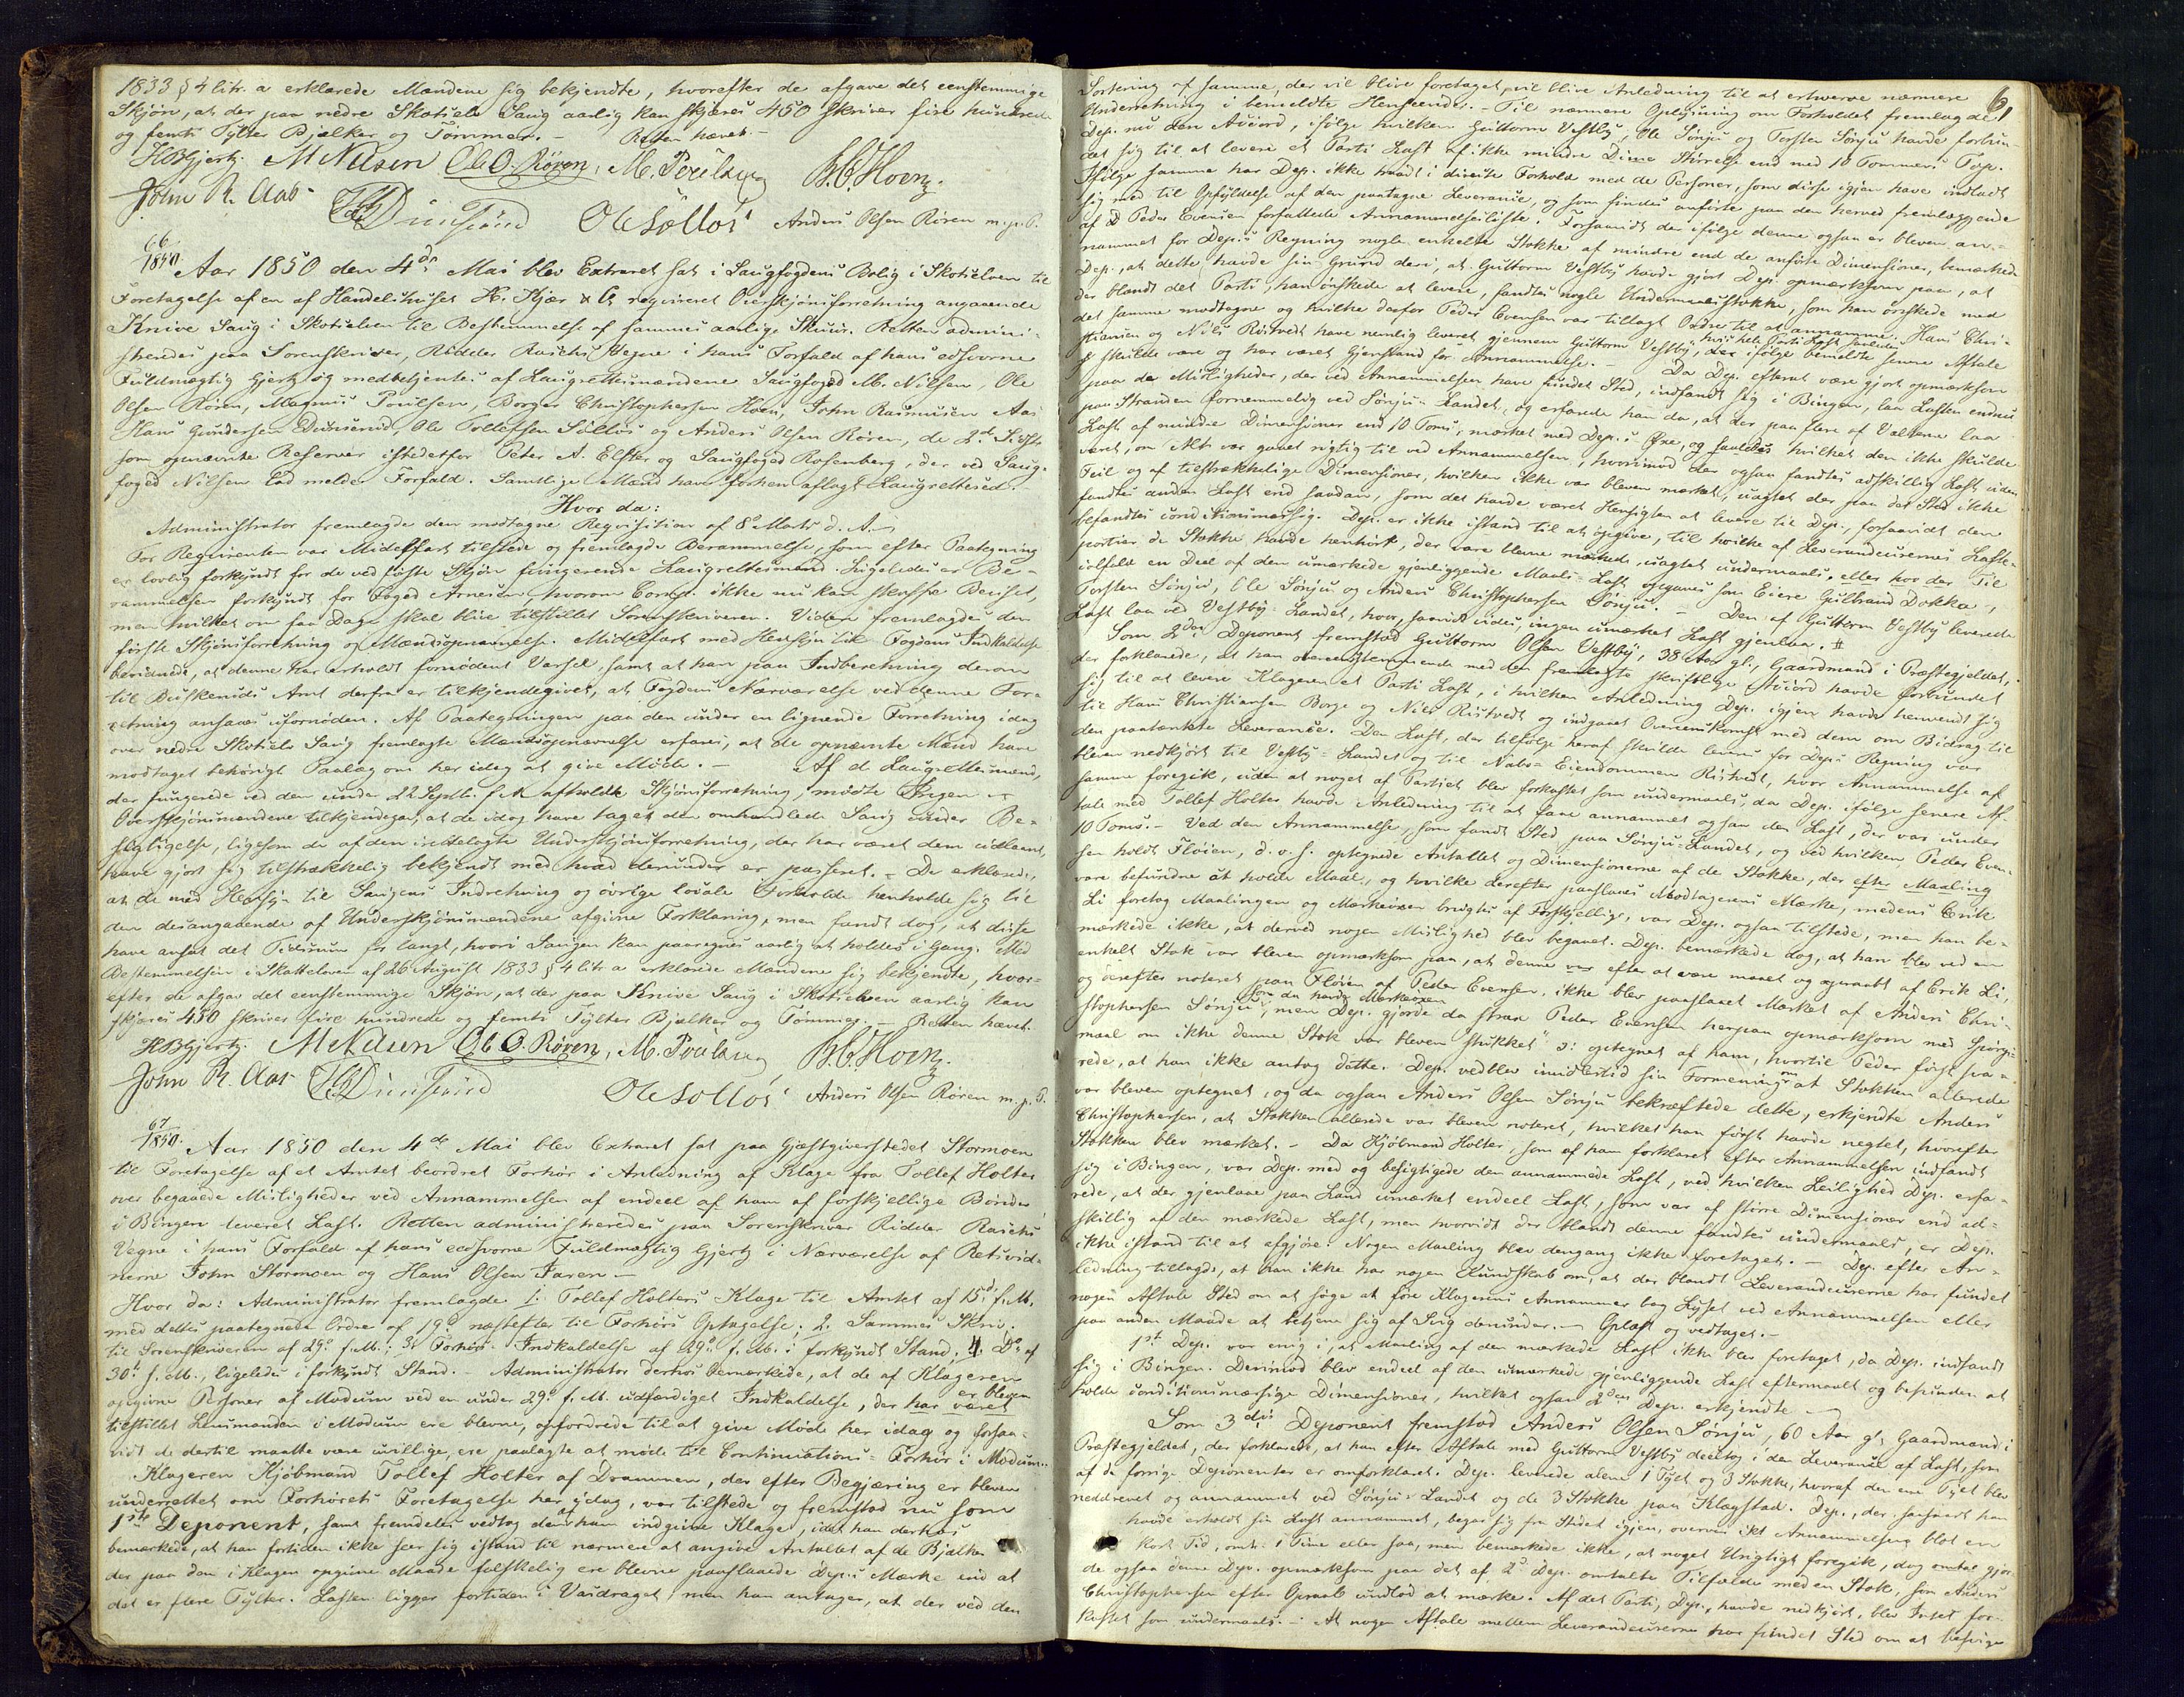 1833 § 4 litr. a erklærede Mændene sig bekjendte, hvorefter de afgave det eenstemmige
Skjøn, at der paa nedre Skotselv Saug aarlig kan skjæres 450 skriver fire hundrede
og femti Tylter Bjælker og Tømmer. — Retten hævet. —
HBGjertz. M Nilsen Ole O. Røren, M. Poulsen B. C. Hoen.
John R. Aas Ole Sølløs Anders Olsen Røren m. p. P.
66/1850. Aar 1850 den 4de Mai blev Extraret sat i Saugfogdens Bolig i Skotselven til
Foretagelse af en af Handelshuset H. Kjær & C. reqvireret Overskjønsforretning angaaende
Knive Saug i Skotselven til Bestemmelse af sammes aarlige Skuur. Retten admini-
streredes paa Sorenskriver, Ridder Raschs Vegne i hans Forfald af hans edsvorne
Fuldmægtig Gjertz og medbetjentes af Laugrettesmændene Saugfoged M. Nilsen, Ole
Olsen Røren, Magnus Poulsen, Borger Christophersen Hoen, John Rasmussen Aas
Hans Gundersen Duuserud, Ole Tollefsen Sølløs og Anders Olsen Røren, de 2de Sidste
som opnævnte Reserver istedetfor Peter A. Elster og Saugfoged Rosenberg, der ved Saug-
foged Nilsen lod melde Forfald. Samtlige Mænd have forhen aflagt Laugrettesed. —
Hvor da:
Administrator fremlagde den modtagne Reqvisition af 8de Marts d. A. —
For Reqvirenten var Midelfart tilstede og fremlagde Berammelse, som efter Paategning
er lovlig forkyndt for de ved første Skjøn fungerende Laugrettesmænd. Ligeledes er Be-
rammelsen forkyndt for Foged Arnesen hvorom Comp. ikke nu kan skaffe Beviset,
men hvilket om faa Dage skal blive tilstillet Sorenskriveren. Videre fremlagde den
første Skjønsforretning og Mændsopnævnelse. Midelfart med Hensyn til Fogdens Indkaldelse
beviднede, at denne har erholdt fornødent Varsel, samt at han paa Indberetning derom
til Buskeruds Amt derfra er tilkjendegivet, at Fogdens Nærværelse ved denne For-
retning ansaaes ufornøden. Af Paategningen paa den under en lignende Forretning idag
over nedre Skotselv Saug fremlagte Mændsopnævnelse erfares, at de opnævnte Mænd have
modtaget behørigt Paalæg om her idag at give Møde. — Af de Laugrettesmænd,
der fungerede ved den under 22 Septbr. f. A. afholdte Skjønsforretning, mødte Ingen —
Overskjønsmændene tilkjendegav, at de idag have taget den omhandlede Saug under Be-
sigtigelse, ligesom de af den fremlagte Underskjønsforretning, der har været dem udlaant,
have gjort sig tilstrækkelig bekjendt med hvad derunder er passeret. — De erklærede,
at de med Hensyn til Saugens Indretning og øvrige locale Forholde henholde sig til
den desangaaende af Underskjønsmændene afgivne Forklaring, men fandt dog, at disse
have ansat det Tidsrum for langt, hvori Saugen kan paaregnes aarlig at holdes i Gang. Med
Bestemmelsen i Skatteloven af 26 August 1833 § 4 litr. a erklærede Mændene sig bekjendte, hvor-
efter de afgav det eenstemmige Skjøn, at der paa Knive Saug i Skotselven aarlig kan
skjæres 450 skriver fire hundrede og femti Tylter Bjælker og Tømmer. — Retten hævet.
HBGjertz. M Nilsen Ole O. Røren, M. Poulsen B. C. Hoen.
John R. Aas Ole Sølløs Anders Olsen Røren m. p. P.
67/1850. Aar 1850 den 4de Mai blev Extraret sat paa Gjæstgiverstedet Stormoen
til Foretagelse af et Amtet beordret Forhør i Anledning af Klage fra Tollef Holter
over begaaede Misligheder ved Annammelsen af endeel af ham af forskjellige Bønder
i Bingen leveret Last. Retten administreredes paa Sorenskriver Ridder Raschs
Vegne i hans Forfald af hans edsvorne Fuldmægtig Gjertz i Nærværelse af Retsvid-
nerne John Stormoen og Hans Olsen Faren —
Hvor da: Administrator fremlagde 1. Tollef Holters Klage til Amtet af 15de f. M.
med dettes paategnede Ordre af 19de næstefter til Forhørs Optagelse; 2. Sammes Skriv.
til Sorenskriveren af 29de f. M.; 3. Forhørs-Indkaldelse af 29de f. M. i forkyndt Stand; 4. Do af
30te f. M., ligeledes i forkyndt Stand. — Administrator derhos bemærkede, at de af Klageren
opgivne Personer af Modum ved en under 29de f. M. udfærdiget Indkaldelse, der har været er bleven
tilstillet Lensmanden i Modum ere blevne opfordrede til at give Møde her idag og forsaa-
vidt de dertil maatte være uvillige, ere paalagte at møde til Continuations-Forhør i Modum.
Klageren Kjøbmand Tollef Holter af Drammen, der efter Begjæring er bleven
underrettet om Forhørets Foretagelse her idag, var tilstede og fremstod nu som
1ste Deponent, samt fremdeles vedtog den af ham indgivne Klage, idet han derhos
bemærkede, at han fortiden ikke seer sig istand til nærmere at angive Antallet af de Bjælker
der paa den i Klagen opgivne Maade falskelig ere blevne paaslaaede Dep.s Mærke end at
det er flere Tylter. Lasten ligger fortiden i Vasdraget, men han antager, at der ved den
61
Sortering af samme, der vil blive foretaget, vil blive Anledning til at erhverve nærmere
Underretning i bemeldte Henseende. — Til nærmere Oplysning om Forholdet fremlagde
Dep. nu den Accord, ifølge hvilken Guttorm Vestby, Ole Sønju og Torsten Sønju havde forbun-
det sig til at levere et Parti Last af ikke mindre Dime Størrelse end med 10 Tommers Top.
Ifølge samme har Dep. ikke staaet i directe Forhold med de Personer, som disse igjen have indladt
sig med til Opfyldelse af den paatagne Leverance, og som findes anførte paa den herved fremlæggende
af Peder Evensen forfattede Annammelsesliste. Forsaavidt der ifølge denne ogsaa er bleven an-
nammet for Dep.s Regning nogle enkelte Stokke af mindre end de anførte Dimensioner, bemærkede
Dep., at dette havde sin Grund deri, at Guttorm Vestby havde gjort Dep. opmærksom paa, at
der blandt det Parti, han ønskede at levere, fandtes nogle Undermaalsstokke, som han ønskede med
det samme modtagne og hvilke derfor Peder Evensen var tillagt Ordre til at annamme. Hans Chri-
stiansen og Nils Ristvedt have nemlig leveret gjennem Guttorm Vestby, hvis hele Parti Last saaledes ifølge bemeldte senere Aftale
skulde være og har været Gjenstand for Annammelse. — Da Dep. efterat være gjort opmærksom
paa de Misligheder, der ved Annammelsen have fundet Sted, indfandt sig i Bingen, laa Lasten endnu
paa Stranden fornemmelig ved Sønju-Landet, og erfarede han da, at der paa flere af Valtene laa
Last af mindre Dimensioner end 10 Toms, mærket med Dep.s Øxe, og saaledes hvilket den ikke skulde
været, om Alt var gaaet rigtig til ved Annammelsen, hvorimod der ogsaa fandtes adskillig Last uden
Feil og af tilstrækkelige Dimensioner, hvilken ikke var bleven mærket, uagtet der paa det Sted ikke
fandtes anden Last end saadan, som det havde været Hensigten at levere til Dep., forsaavidt den
befandtes conditionsmæssig. Dep. er ikke istand til at opgive, til hvilke af Leverandeurernes Laste-
partier de Stokke havde henhørt, der vare blevne mærkede, uagtet undermaals, eller hos der Til
ialfald en Deel af den umærkede gjenliggende Maals-Last opgaves som Eiere Gulbrand Dokka,
Torsten Sønju, Ole Sønju og Anders Christophersen Sønju. — Den af Guttorm Vestby leverede
Last laa ved Vestby-Landet, hvor, saavidt vides, ingen umærket Last gjenlaa.
Som 2den Deponent fremstod Guttorm Olsen Vestby, 38 Aar gl., Gaardmand i Præstegjeldet,
der forklarede, at han overeensstemmende med den fremlagte skriftlige Accord havde forbundet
sig til at levere Klageren et Parti Last, i hvilken Anledning Dep. igjen havde henvendt sig
til Hans Christiansen Borge og Nils Ristvedt og indgaaet Overeenskomst med dem om Bidrag til
den paatænkte Leverance. Den Last, der tilfølge heraf skulde leveres for Dep.s Regning var
bleven nedkjørt til Vestby-Landet og til Nabo-Eiendommen Ristvedt, hvor Annammelse af
samme foregik, uden at noget af Partiet blev forkastet som undermaals, da Dep. ifølge senere Af-
tale med Tollef Holter havde Anledning til at faae annammet ogsaa den Last, der var under
10 Toms. — Ved den Annammelse, som fandt Sted paa Sønju-Landet, og ved hvilken Peder Even-
sen holdt Fløien, d. v. s. optegnede Antallet og Dimensionerne af de Stokke, der efter Maaling
vare befundne at holde Maal, og hvilke derefter paaslaaes Modtagerens Mærke, medens Erik
Li foretog Maalingen og Mærkeøxen brugtes af Forskjellige, var Dep. ogsaa tilstede, men han be-
mærkede ikke, at derved nogen Mislighed blev begaaet. Dep. bemærkede dog, at han blev ved en
enkelt Stok var bleven opmærksom paa, at denne efter at være maalt og opraabt af Erik Li,
og derefter noteret paa Fløien af Peder Evensen, ikke blev paaslaaet Mærket af Anders Chri-
stophersen Sønju, som da havde Mærkeøxen, men Dep. gjorde da strax Peder Evensen herpaa opmærksom med Spørgs-
maal om ikke denne Stok var bleven "stukket" ɔ: optegnet af ham, hvortil Peder først sva-
rede, at han ikke antog dette. Dep. vedblev imidlertid sin Formening om at Stokken allerede
var bleven optegnet, og da ogsaa Anders Olsen Sønju bekræftede dette, erkjendte Anders
Christophersen, at Stokken allerede var bleven noteret, hvilket han først havde negtet, hvorefter
Stokken blev mærket. — Da Kjøbmand Holter, som af ham forklaret efter Annammelsen indfandt
sig i Bingen, var Dep. med og besigtigede den annammede Last, ved hvilken Leilighed Dep. erfa-
rede, at der gjenlaae paa Land umærket endeel Last, som var af større Dimensioner end ad-
skillig af den mærkede Last, men hvorvidt der blandt denne fandtes undermaals, er Dep.
ikke istand til at afgjøre. Nogen Maaling blev dengang ikke foretaget. — Dep. efter An-
ledning tillagde, at han ikke har nogen Kundskab om, at der blandt Leverandeurerne har fundet
nogen Aftale Sted om at søge at føre Klagerens Annammer bag Lyset ved Annammelsen eller
paa anden Maade at betjene sig af Svig derunder. — Oplæst og vedtaget. —
1ste Dep. var enig i, at Maaling af den mærkede Last ikke blev foretaget, da Dep. indfandt
sig i Bingen. Derimod blev endeel af den umærkede gjenliggende Last eftermaalt og befunden at
holde conditionsmæssige Dimensioner, hvilket ogsaa 2den Dep. erkjendte. —
Som 3die Deponent fremstod Anders Olsen Sønju, 60 Aar gl., Gaardmand i
Præstegjeldet, der forklarede, at han efter Aftale med Guttorm Vestby deeltog i den Leverance af Last, som
af de forrige Deponenter er omforklaret. Dep. leverede alene 1 Tylt og 3 Stokke, hvoraf den ene Tylt blev
neddrevet og annammet ved Sønju-Landet og de 3 Stokke paa Klagstad. Dep., der saasnart han
havde erholdt sin Last annammet, begav sig fra Stedet igjen, overvar ikke Annammelsen blot en
kort Tid, omtr. 1 Time eller saa, men bemærkede ikke, at noget Urigtigt foregik, dog gjor-
de ogsaa denne Dep. opmærksom paa det af 2den Dep. omtalte Tilfælde med en Stok, som Anders
Christophersen efter Opraab undlod at mærke. Af det Parti, Dep. havde nedkjørt, blev Intet for-
kastet som undermaals. — At nogen Aftale mellem Leverandeurerne har fundet Sted om at besvige